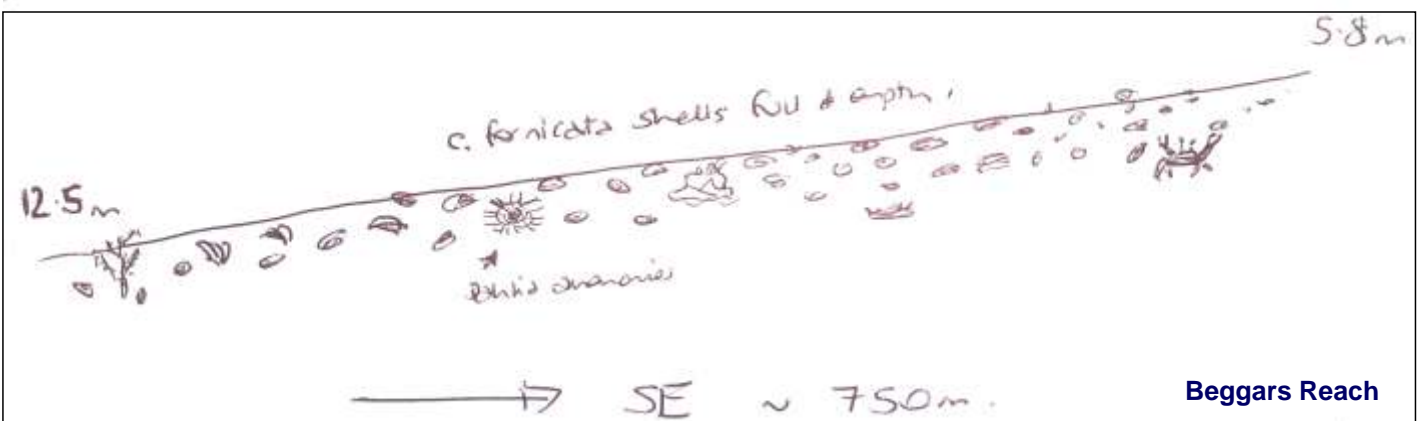 5.8m
c. fornicata shells full & empty.
12.5m
anemonies
SE ~ 750m.
Beggars Reach